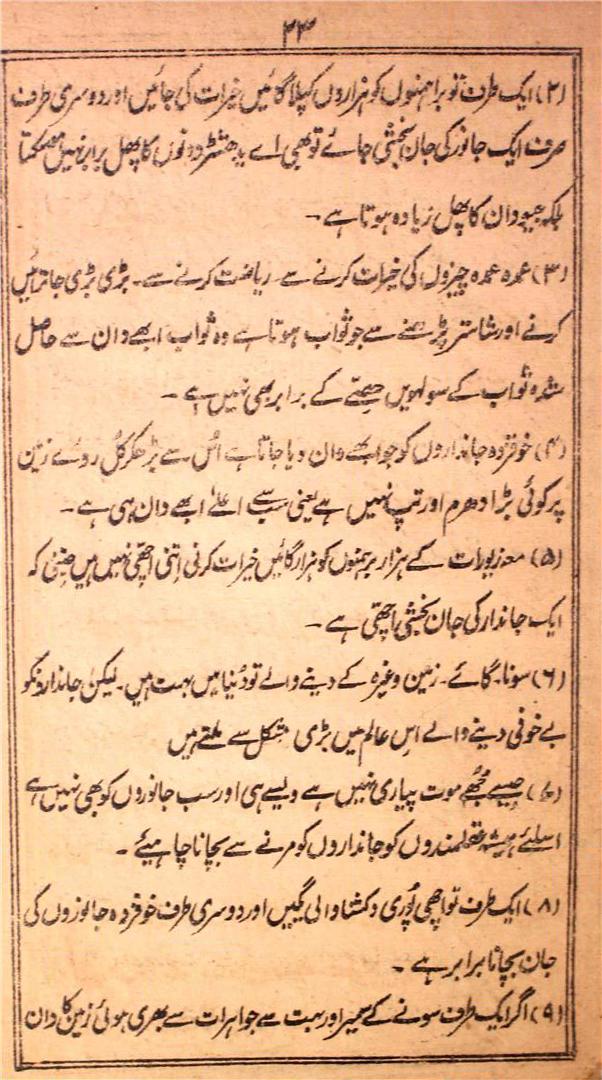 ۳۳
(۲) ایک طرف تو براہمنوں کو ہزاروں کپلا گائیں خیرات کی جائیں اور دوسری طرف
صرف ایک جانور کی جان بخشی جائے تو بھی اے یدھشٹر دونوں کا پھل برابر نہیں ہوسکتا
بلکہ جیو دان کا پھل زیادہ ہوتا ہے ۔
(۳) عمدہ عمدہ چیزوں کی خیرات کرنے سے ریاضت کرنے سے ۔ بڑی بڑی جاترائیں
کرنے اور شاستر پڑھنے سے جو ثواب ہوتا ہے وہ ثواب ابھے دان سے حاصل
شدہ ثواب کے سولہویں حصّے کے برابر بھی نہیں ہے ۔
(۴) خوفزدہ جانداروں کو جو ابھے دان دیا جاتا ہے اُس سے بڑھکر کُل روئے زمین
پر کوئی بڑا دھرم اور تپ نہیں ہے یعنی سب سے اعلےٰ ابھے دان ہی ہے ۔
(۵) معہ زیورات کے ہزار برہمنوں کو ہزار گائیں خیرات کرنی اِتنی اچھّی نہیں ہیں جتنی کہ
ایک جاندار کی جان بخشی اچھّی ہے ۔
(۶) سونا ۔ گائے ۔ زمین وغیرہ کے دینے والے تو دُنیا میں بہت ہیں ۔ لیکن جانداروں کو
بے خوفی دینے والے اِس عالم میں بڑی مشکل سے ملتے ہیں
(۷) جیسے مجُھے موت پیاری نہیں ہے ویسے ہی اور سب جانوروں کو بھی نہیں ہے
اسلئے ہمیشہ عقلمندوں کو جانداروں کو مرنے سے بچانا چاہیئے ۔
(۸) ایک طرف تو اچھی پُوری دکشنا والی یگیں اور دوسری طرف خوفزدہ جانوروں کی
جان بچانا برابر ہے ۔
(۹) اگر ایک طرف سونے کے سمیر اور بہت سے جواہرات سے بھری ہوئی زمین کا دان